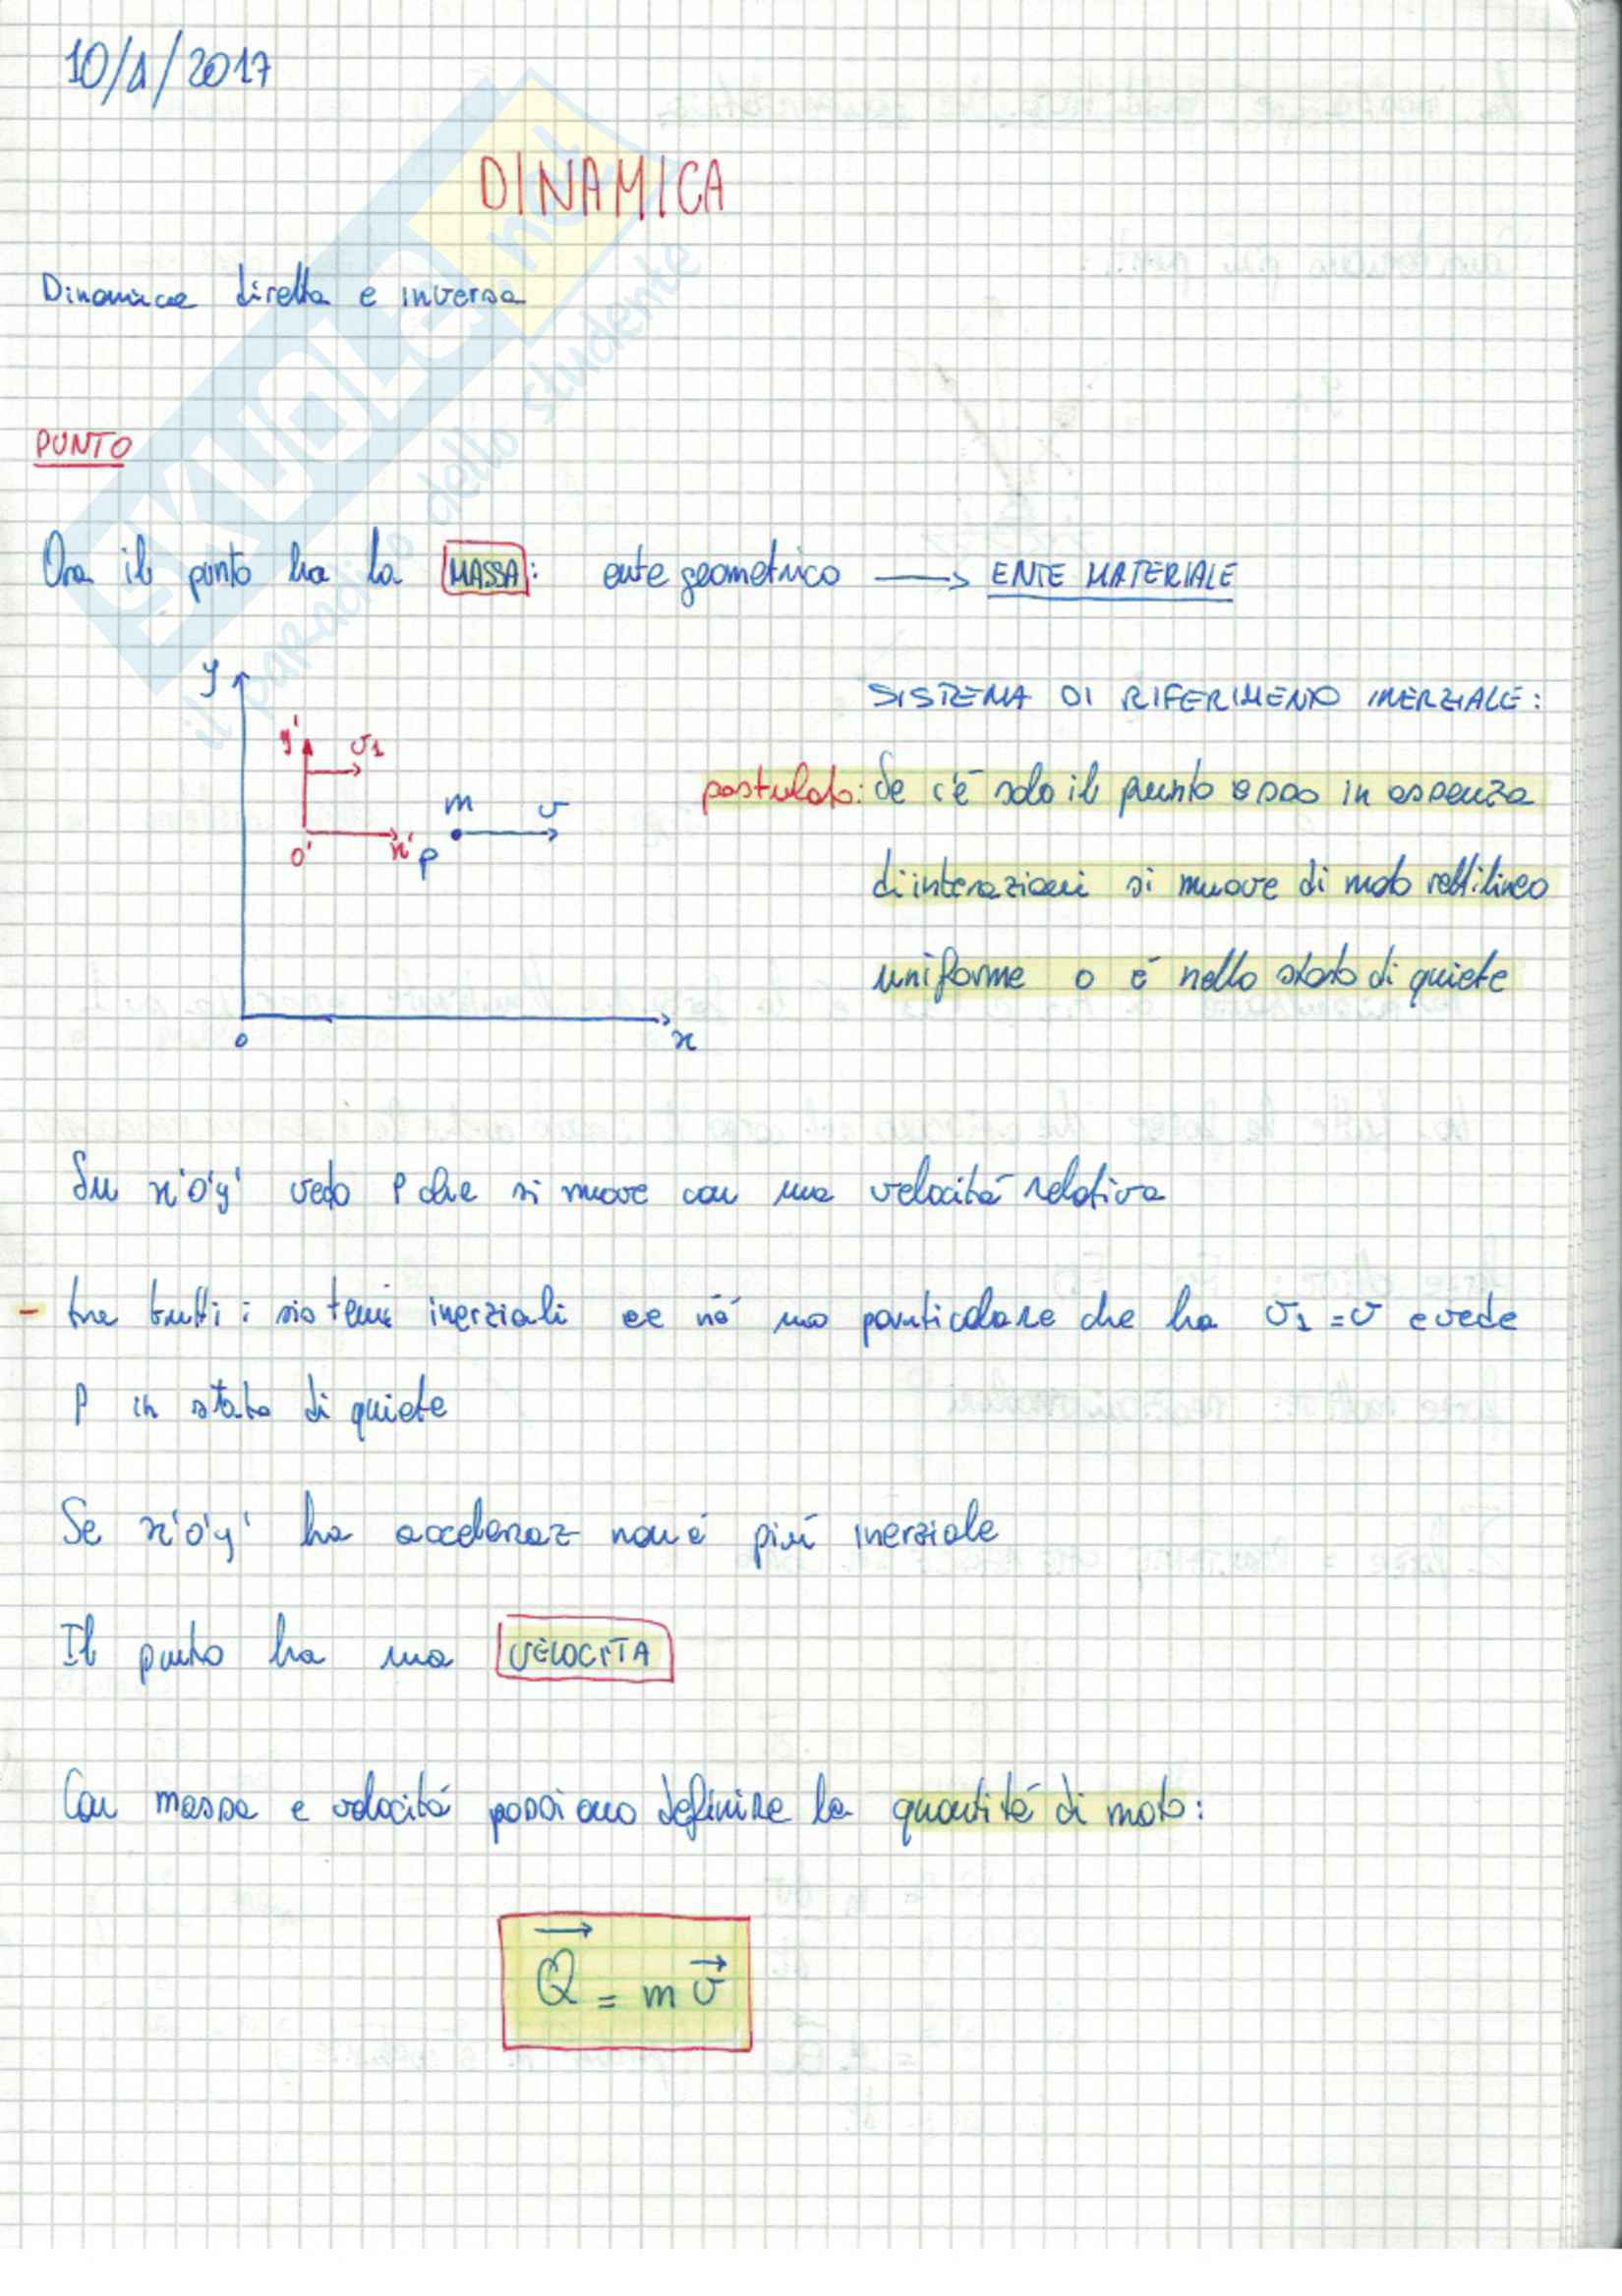 10/1/2017
DINAMICA
Dinamica diretta e inversa
PUNTO
Ora il punto ha la MASSA: ente geometrico → ENTE MATERIALE
y
y'
v₁
m
v
o'
x'
P
o
x
SISTEMA DI RIFERIMENTO INERZIALE:
postulato: Se c'è solo il punto esso in assenza
di interazioni si muove di moto rettilineo
uniforme o é nello stato di quiete
Su x'o'y' vedo P che si muove con una velocitá relativa
- tra tutti i sistemi inerziali ce n'é uno particolare che ha v₁ = v e vede
P in stato di quiete
Se x'o'y' ha acceleraz non é piú inerziale
Il punto ha una VELOCITÀ
Con massa e velocitá possiamo definire la quantitá di moto:
Q⃗ = m v⃗
SKUOLA.net
il paradiso dello studente